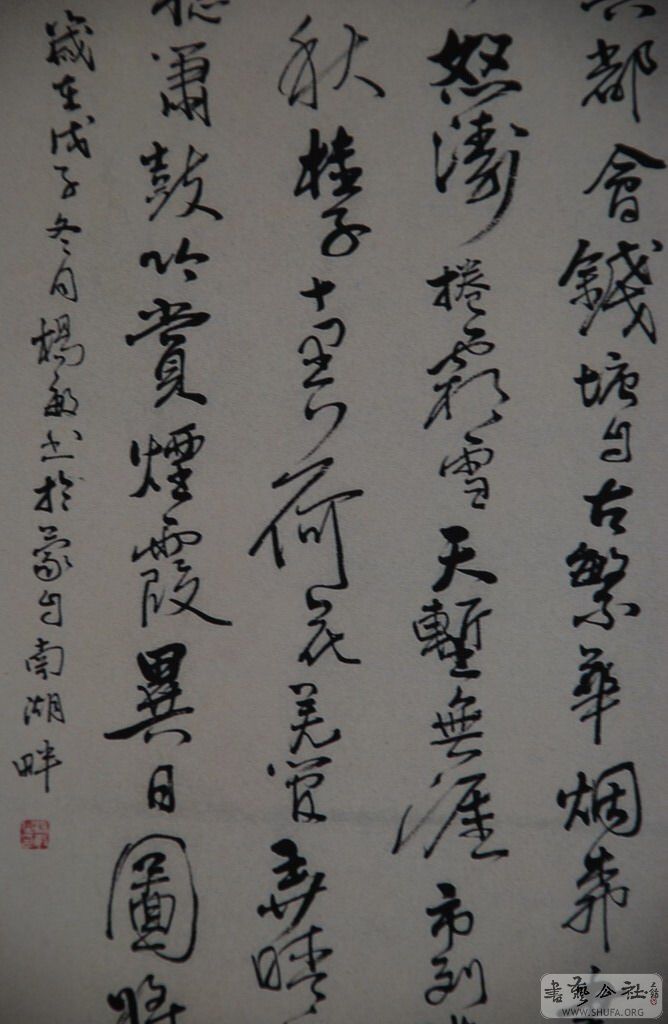 都會錢塘自古繁華烟柳
怒濤捲霜雪天塹無涯市列
秋桂子十里荷花羌管弄晴
聽簫鼓吟賞煙霞異日圖將
歲在戊子冬日楊敏书於蒙自南湖畔
書藝公社
WWW.SHUFA.ORG